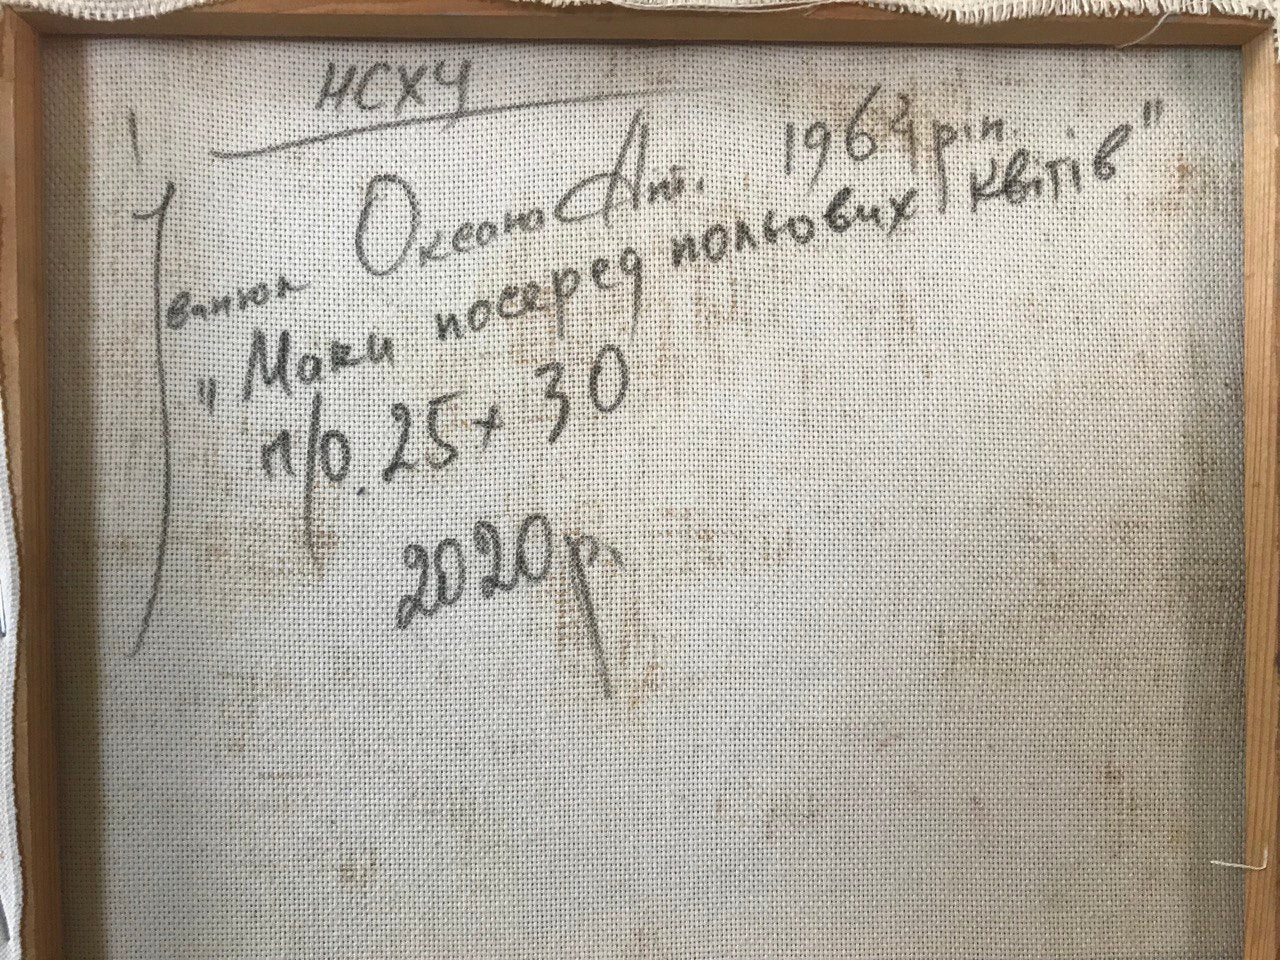 НСХУ
Іванюк Оксана Ант. 1964 р.н.
"Маки посеред польових квітів"
п/о. 25х30
2020р.